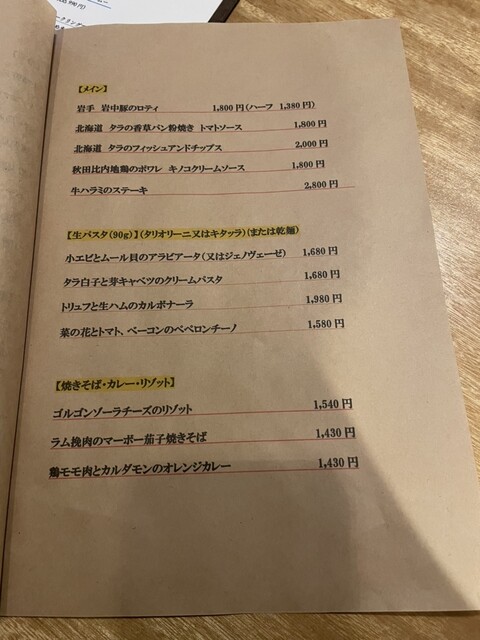 【メイン】
岩手 岩中豚のロティ 1,800円(ハーフ 1,380円)
北海道 タラの香草パン粉焼き トマトソース 1,800円
北海道 タラのフィッシュアンドチップス 2,000円
秋田比内地鶏のポワレ キノコクリームソース 1,800円
牛ハラミのステーキ 2,800円
【生パスタ(90g)】(タリオリーニ又はキタッラ)(または乾麺)
小エビとムール貝のアラビアータ(又はジェノヴェーゼ) 1,680円
タラ白子と芽キャベツのクリームパスタ 1,680円
トリュフと生ハムのカルボナーラ 1,980円
菜の花とトマト、ベーコンのペペロンチーノ 1,580円
【焼きそば・カレー・リゾット】
ゴルゴンゾーラチーズのリゾット 1,540円
ラム挽肉のマーボー茄子焼きそば 1,430円
鶏モモ肉とカルダモンのオレンジカレー 1,430円